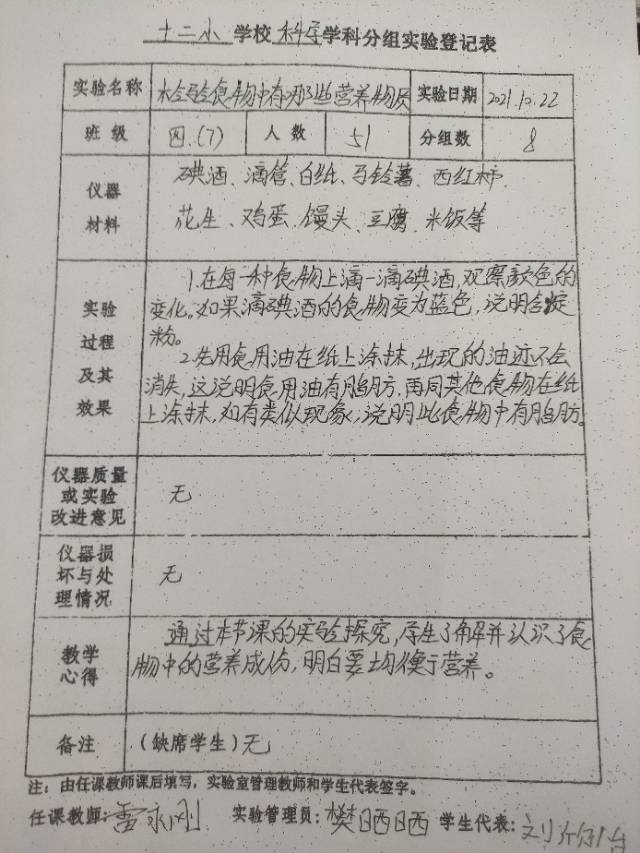 十二小 学校 科学 学科分组实验登记表
实验名称 检验食物中有哪些营养物质 实验日期 2021.10.22
班级 四.(7) 人数 51 分组数 8
仪器材料
碘酒、滴管、白纸、马铃薯、西红柿、
花生、鸡蛋、馒头、豆腐、米饭等
实验过程及其效果
1.在每一种食物上滴一滴碘酒,观察颜色的
变化。如果滴碘酒的食物变为蓝色,说明含淀
粉。
2.先用食用油在纸上涂抹,出现的油迹不会
消失,这说明食用油有脂肪.再同其他食物在纸
上涂抹,如有类似现象,说明此食物中有脂肪。
仪器质量或实验改进意见 无
仪器损坏与处理情况 无
教学心得
通过本节课的实验探究,学生了解并认识了食
物中的营养成份,明白要均衡于营养。
备注 (缺席学生)无
注:由任课教师课后填写,实验室管理教师和学生代表签字。
任课教师:雷永刚 实验管理员:樊晒晒 学生代表:刘